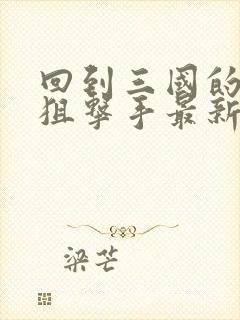 回到三國的
狙擊手最新
梁芒